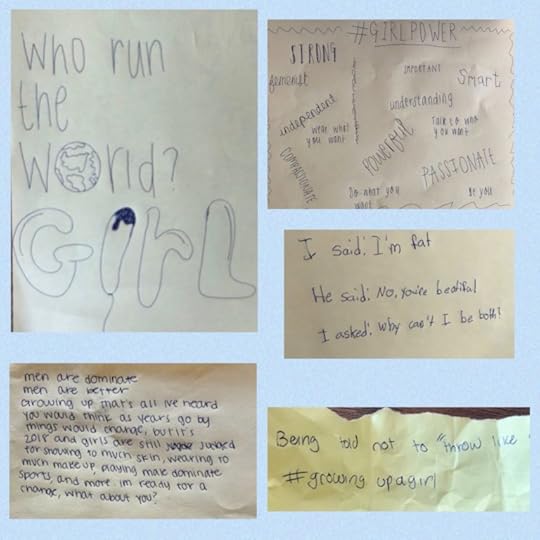 who run
the
World?
GIrL
#GIRLPOWER
STRONG
feminist
IMPORTANT
Smart
understanding
independent
wear what
you want
Talk to who
you want
powerful
COMPASSIONATE
PASSIONATE
Do what you
want
Be you
I said: I'm fat
He said: No, you're beatiful
I asked: why can't I be both?
men are dominate
men are better
Growing up that's all ive heard
you would think as years go by
things would change, but it's
2018 and girls are still judged
for showing to much skin, wearing to
much make up, playing male dominate
sports, and more. im ready for a
change, what about you?
Being told not to "throw like
#growing upagirl